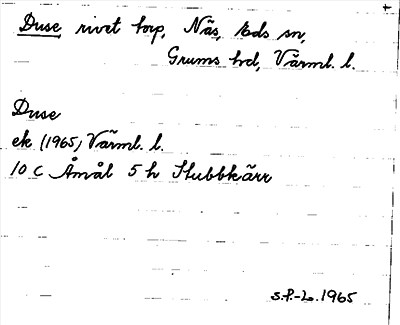 Duse rivet torp, Näs, Eds sn,
Grums hd, Värml. l.
Duse
ek (1965) Värml. l.
10 C Åmål 5 h Stubbkärr
S.P.-L. 1965